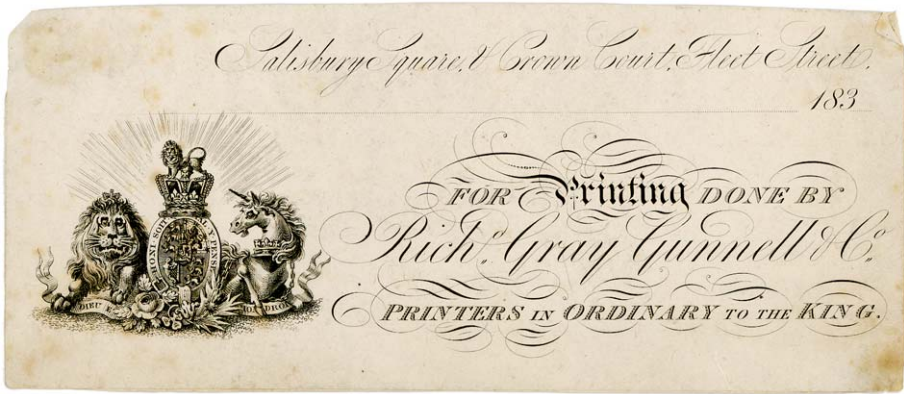 Salisbury Square, & Crown Court, Fleet Street.
183
FOR Printing DONE BY
Richd. Gray Gunnell & Co.
PRINTERS IN ORDINARY TO THE KING.
HONI SOIT Y PENSE
DIEU E
MON DRO